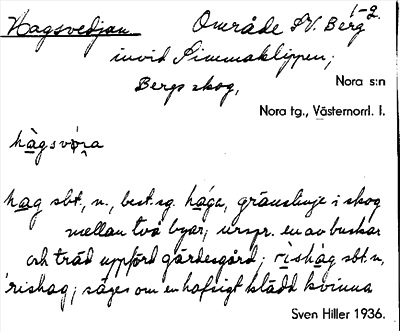 Hagsvedjan Område S.V. Berg 1-2.
invid Simmaklippen;
Bergs skog,
Nora s:n
Nora tg., Västernorrl. l.
hàgsvɷra
hag sbt., n., best. sg. hága, gränslinje i skog
mellan två byar; urspr. en av buskar
och träd uppförd gärdesgård; rishag sbt. n,
'rishag; säges om en hafsigt klädd kvinna
Sven Hiller 1936.